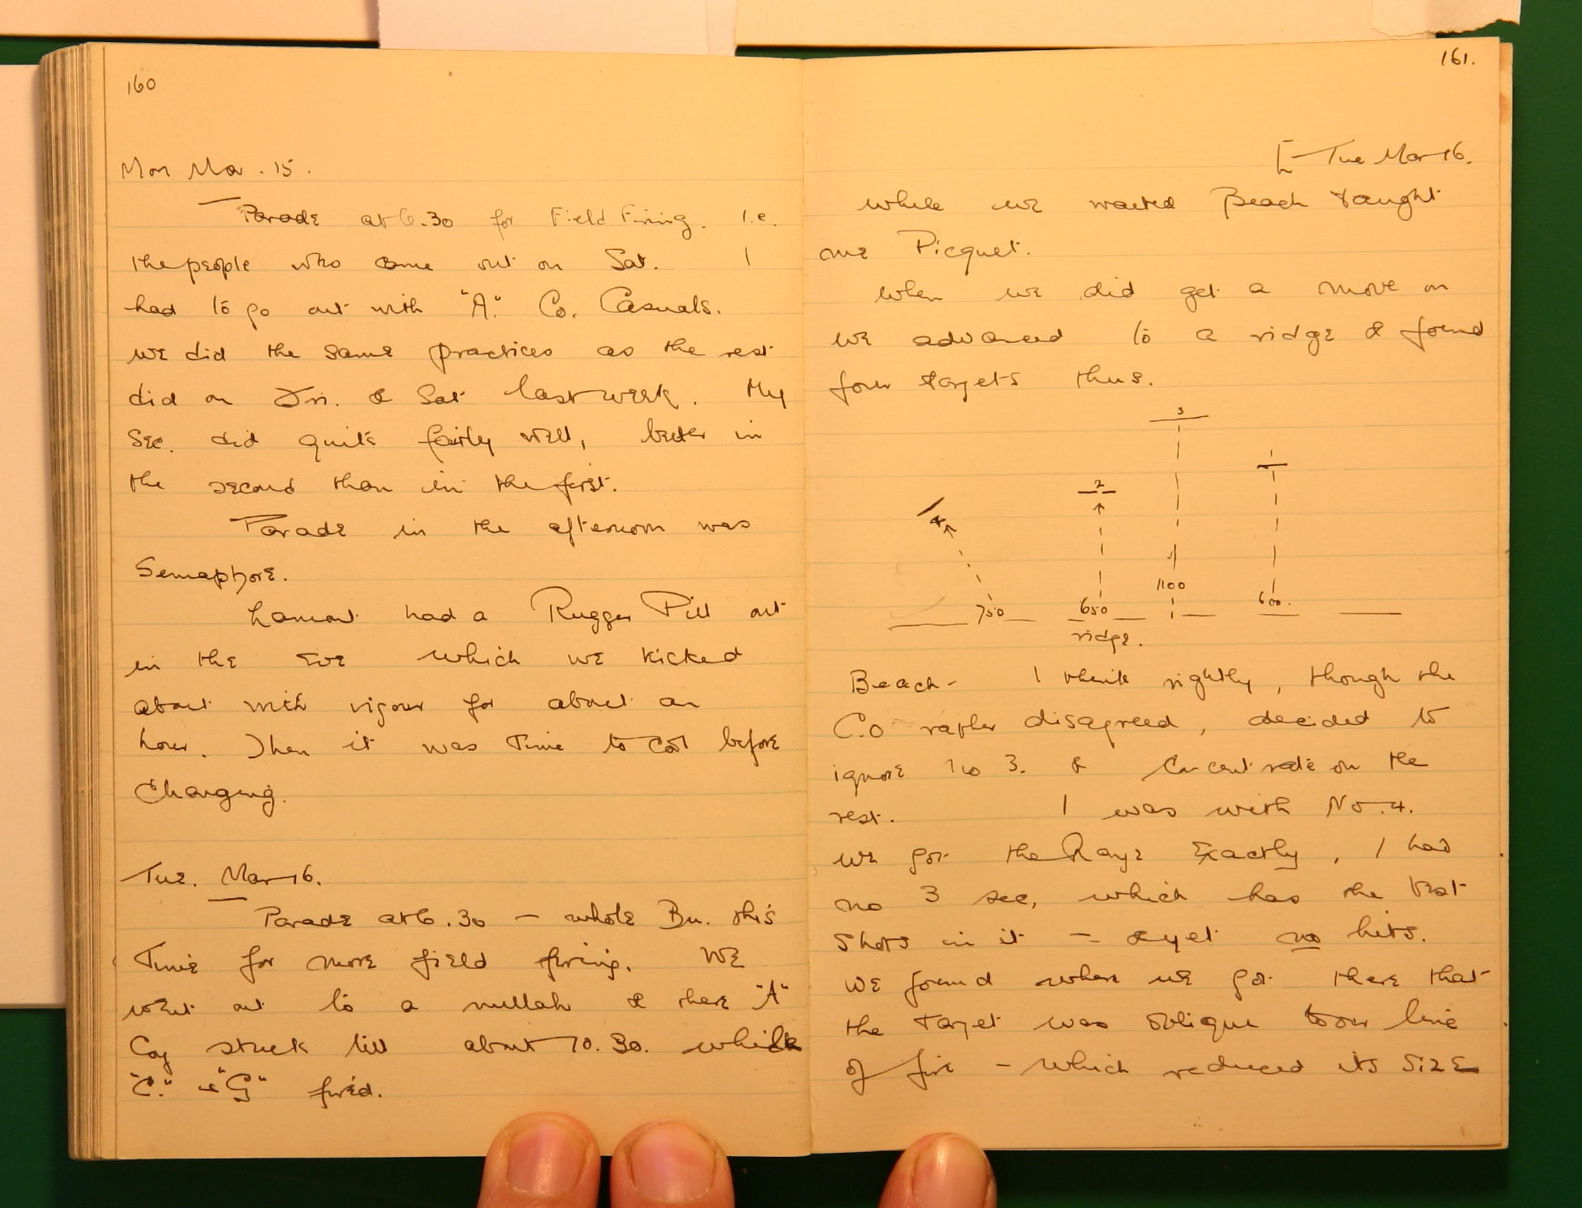 160
Mon Mar. 15.
Parade at 6.30 for Field Firing. I.e.
the people who came out on Sat. I
had to go out with "A". Co. Casuals.
We did the same practices as the rest
did on Fri. & Sat last week. My
Sec. did quite fairly well, better in
the second than in the first.
Parade in the afternoon was
Semaphore.
Lamont had a Rugger Pill out
in the eve which we kicked
about with vigour for about an
hour. Then it was time to cool before
changing.
Tue. Mar 16.
Parade at 6.30 - whole Bn. this
Time for more field firing. We
went out to a nullah & there "A"
Coy stuck till about 10.30. while
"C." & "G" fired.
161.
[- Tue Mar 16.
while we waited Beach taught
me Picquet.
When we did get a move on
we advanced to a ridge & found
four targets thus.
3
2
4
1
1100
750
650
600.
ridge.
Beach - I think rightly, though the
C.O rather disagreed, decided to
ignore No 3. & Concentrate on the
rest. I was with No. 4.
We got the Range Exactly, I had
no 3 sec, which has the best
shots in it - & yet no hits.
We found when we got there that
the target was oblique to our line
of fire - which reduced its size